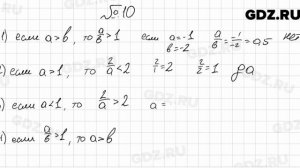 GDZ.RU
№10
1) если a>b, то a/b>1 если a=-1 b=-2 a/b = -1/-2 = 0,5 нет
2) если a>1, то 2/a<2 2/1=2 2/2=1 да
) если a<1, то 2/a>2 a=
) если a/b>1, то a>b